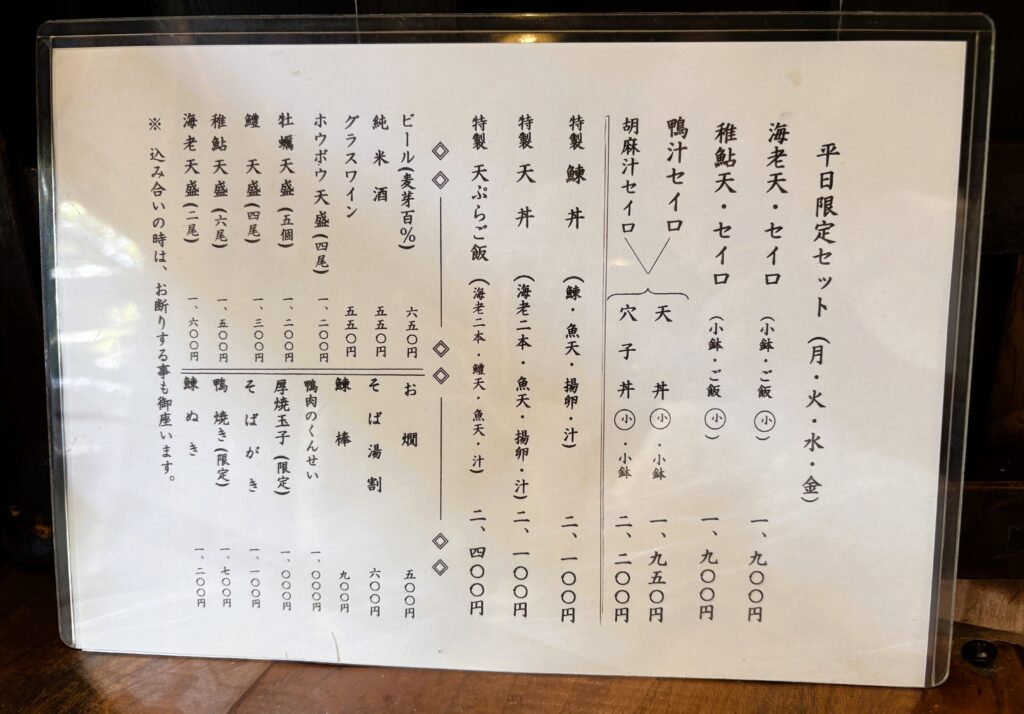 平日限定セット(月・火・水・金)
海老天・セイロ(小鉢・ご飯小)一、九〇〇円
稚鮎天・セイロ(小鉢・ご飯小)一、九〇〇円
鴨汁セイロ
胡麻汁セイロ
天丼小・小鉢 一、九五〇円
穴子丼小・小鉢 二、二〇〇円
特製 鰊丼(鰊・魚天・揚卵・汁)二、一〇〇円
特製 天丼(海老二本・魚天・揚卵・汁)二、一〇〇円
特製 天ぷらご飯(海老二本・鱧天・魚天・汁)二、四〇〇円
ビール(麦芽百%)六五〇円
純米酒 五五〇円
グラスワイン 五五〇円
ホウボウ天盛(四尾)一、二〇〇円
牡蠣天盛(五個)一、二〇〇円
鱧 天盛(四尾)一、三〇〇円
稚鮎天盛(六尾)一、五〇〇円
海老天盛(二尾)一、六〇〇円
お燗 五〇〇円
そば湯割 六〇〇円
鰊棒 九〇〇円
鴨肉のくんせい 一、〇〇〇円
厚焼玉子(限定)一、〇〇〇円
そばがき 一、一〇〇円
鴨焼き(限定)一、七〇〇円
鰊ぬき 一、二〇〇円
※ 込み合いの時は、お断りする事も御座います。